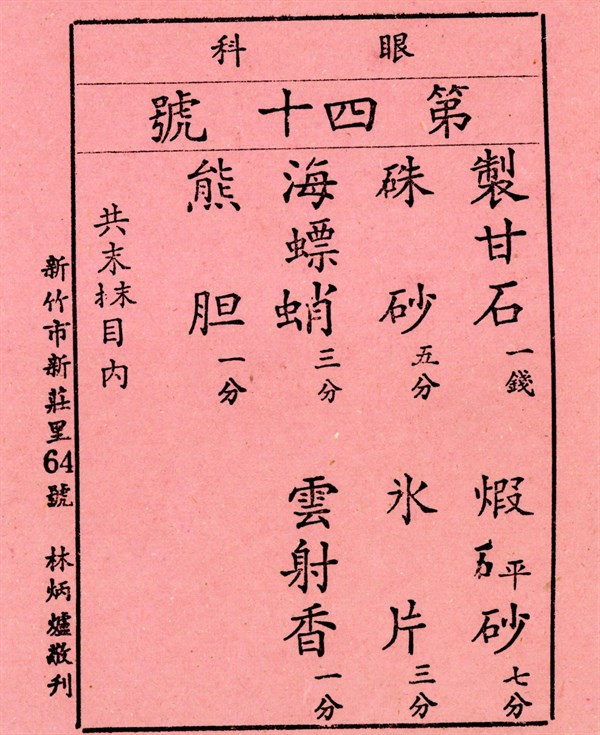 眼科
第四十號
製甘石一錢 煆平砂七分
硃砂五分 氷片三分
海螵蛸三分 雲射香一分
熊胆一分
共末抹目内
新竹市新莊里64號 林炳爐敬刊